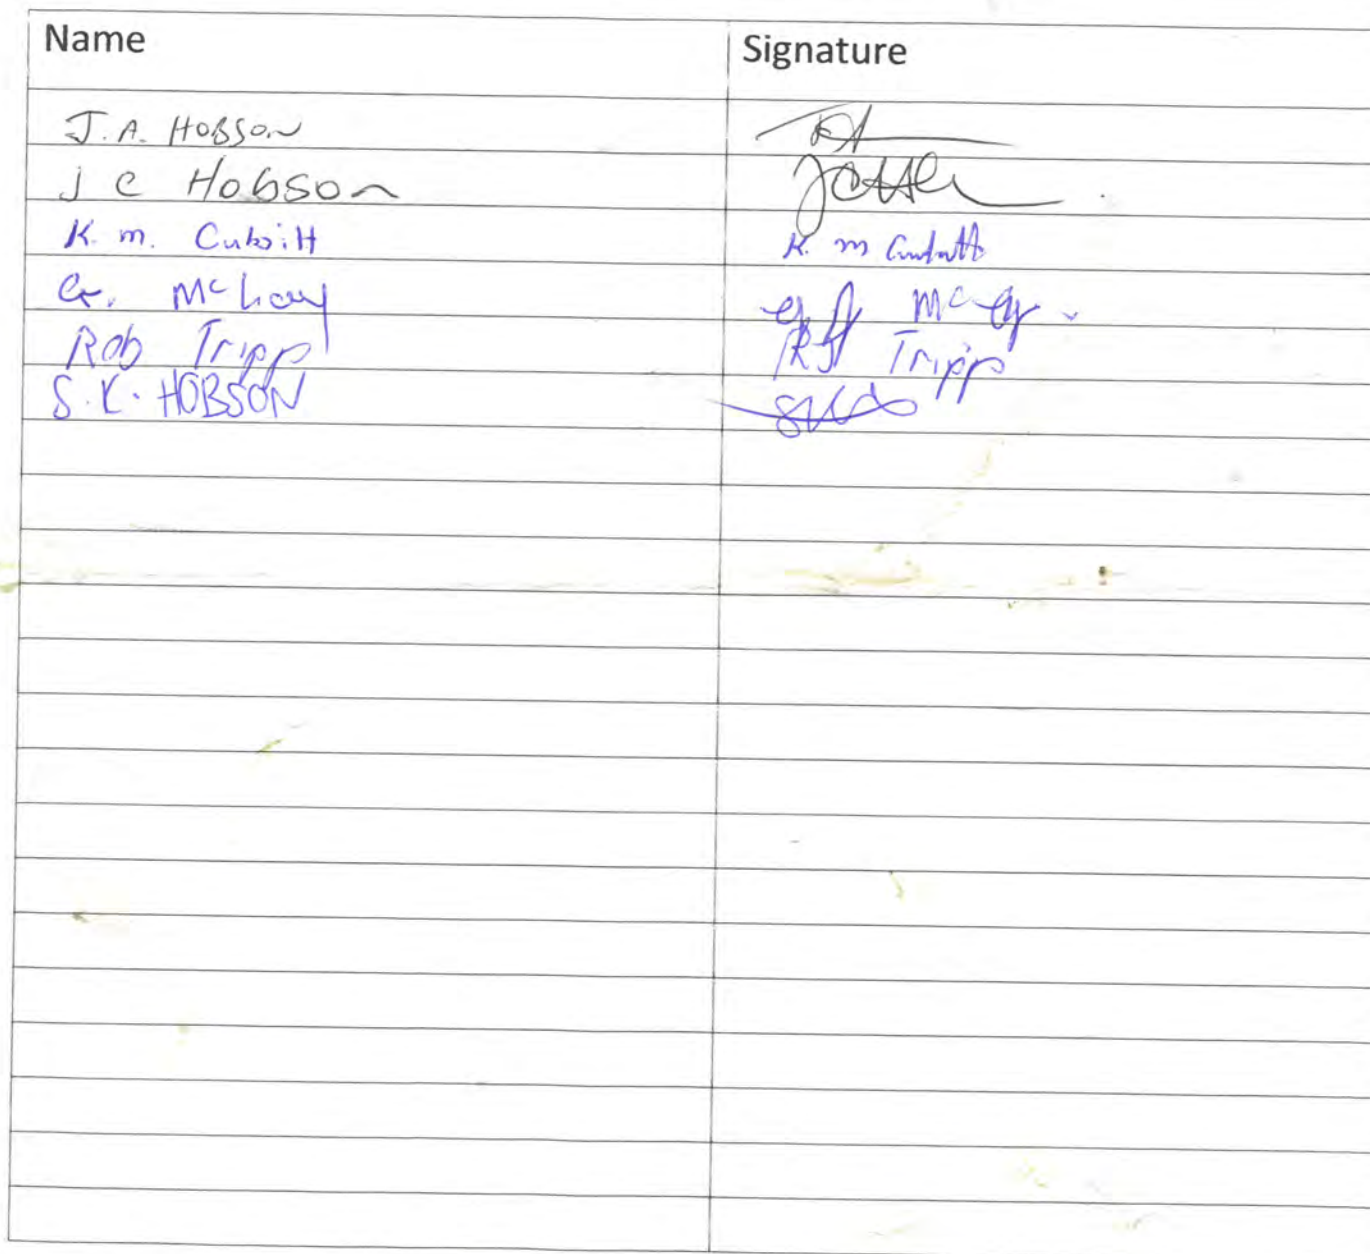 Name Signature
J. A. HOBSON
J C Hobson
K. m. Cubitt K. m Cubitt
G. Mc
Rob Tripp R Tripp
S. K. HOBSON